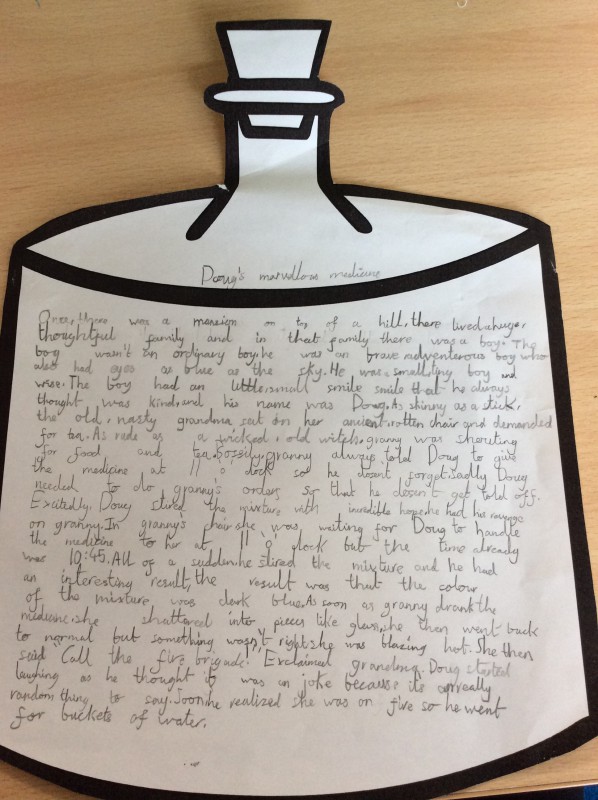 Doug's marvellous medicine
Once, there was a mansion on top of a hill, there lived a huge,
thoughtful family and in that family there was a boy. The
boy wasn't an ordinary boy, he was an brave adventerous boy who
also had eyes as blue as the sky. He was small, tiny boy and
wise. The boy had an little, small smile smile that he always
thought was kind, and his name was Doug. As shinny as a stick,
the old, nasty grandma sat on her ancient, rotten chair and demanded
for tea. As rude as a wicked, old witch, granny was shouting
for food and tea. bossily, granny always told Doug to give
the medicine at 11 o'clock so he dosent forget. sadly Doug
needed to do granny's orders so that he dosen't get told off.
Excitedly, Doug stired the mixture with incredible hope. he had his revenge
on granny. In granny's chair she was, waiting for Doug to handle
the medicine to her at 11 o'clock but the time already
was 10:45. All of a sudden, he stired the mixture and he had
an interesting result, the result was that the colour
of the mixture was dark blue. As soon as granny drank the
medicine, she shattered into pieces like glass, she then went back
to normal but something wasn't right, she was blazing hot. She then
said "Call the fire brigade!" Exclaimed grandma. Doug started
laughing as he thought it was an joke because its a really
random thing to say. Soon, he realized she was on fire so he went
for buckets of water.